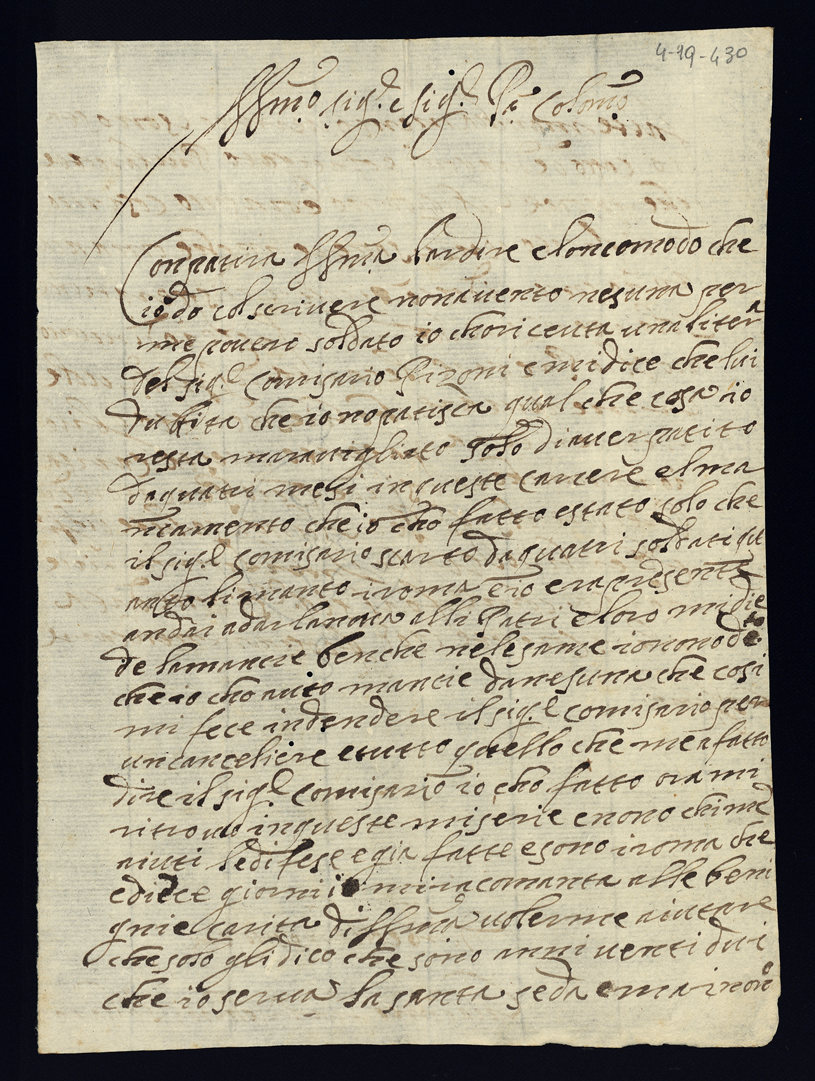 4-19-430
Illmo sig.r e sig.r Pa Colomo
Conpatira Illma lardire eloncomodo che
io do colscriuere nonauento nesuna per
me pouero soldato io choriceuta una litera
del sig.r Comisario Pizoni emidice che lui
dubita che io nopatisca qual che cosa io
resta marauigliato solo diauer patito
daquatri mesi inqueste carcere elma
ncamento che io cho fatto estato solo che
il sig.r comisario scarto daquatri soldati qu
ando limanto iroma e io era presente
andai adar lanoua alli Patri eloro midie
de lamancie benche nelesame iononode to
che io cho auto mancie danesuna che cosi
mi fece indendere il sig.r comisario per
uncanceliere etutto quello che me afatto
dire il sig.r comisario io cho fatto ora mi
ritrouo inqueste miserie enono chime
aiuti ledifese egia fatte esono iroma che
ediece giorni mi racomanta alle beni
gnie carita di Illma uolerme aiutare
che solo gli dico che sono anni uenti dui
che io serua la santa seda emai nono